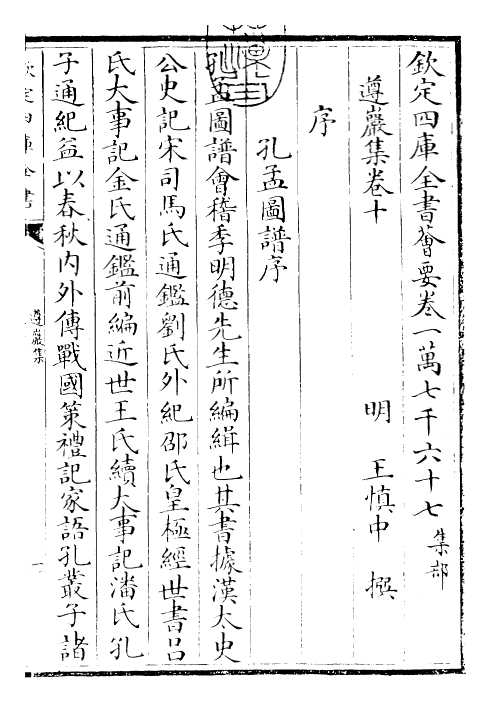 欽定四庫全書薈要卷一萬七千六十七 集部
遵巖集卷十
明 王慎中 撰
序
孔孟圖譜序
孔孟圖譜會稽季明德先生所編緝也其書據漢太史
公史記宋司馬氏通鑑劉氏外紀邵氏皇極經世書吕
氏大事記金氏通鑑前編近世王氏續大事記潘氏孔
子通紀益以春秋内外傳戰國策禮記家語孔叢子諸
欽定四庫全書
遵巖集
一